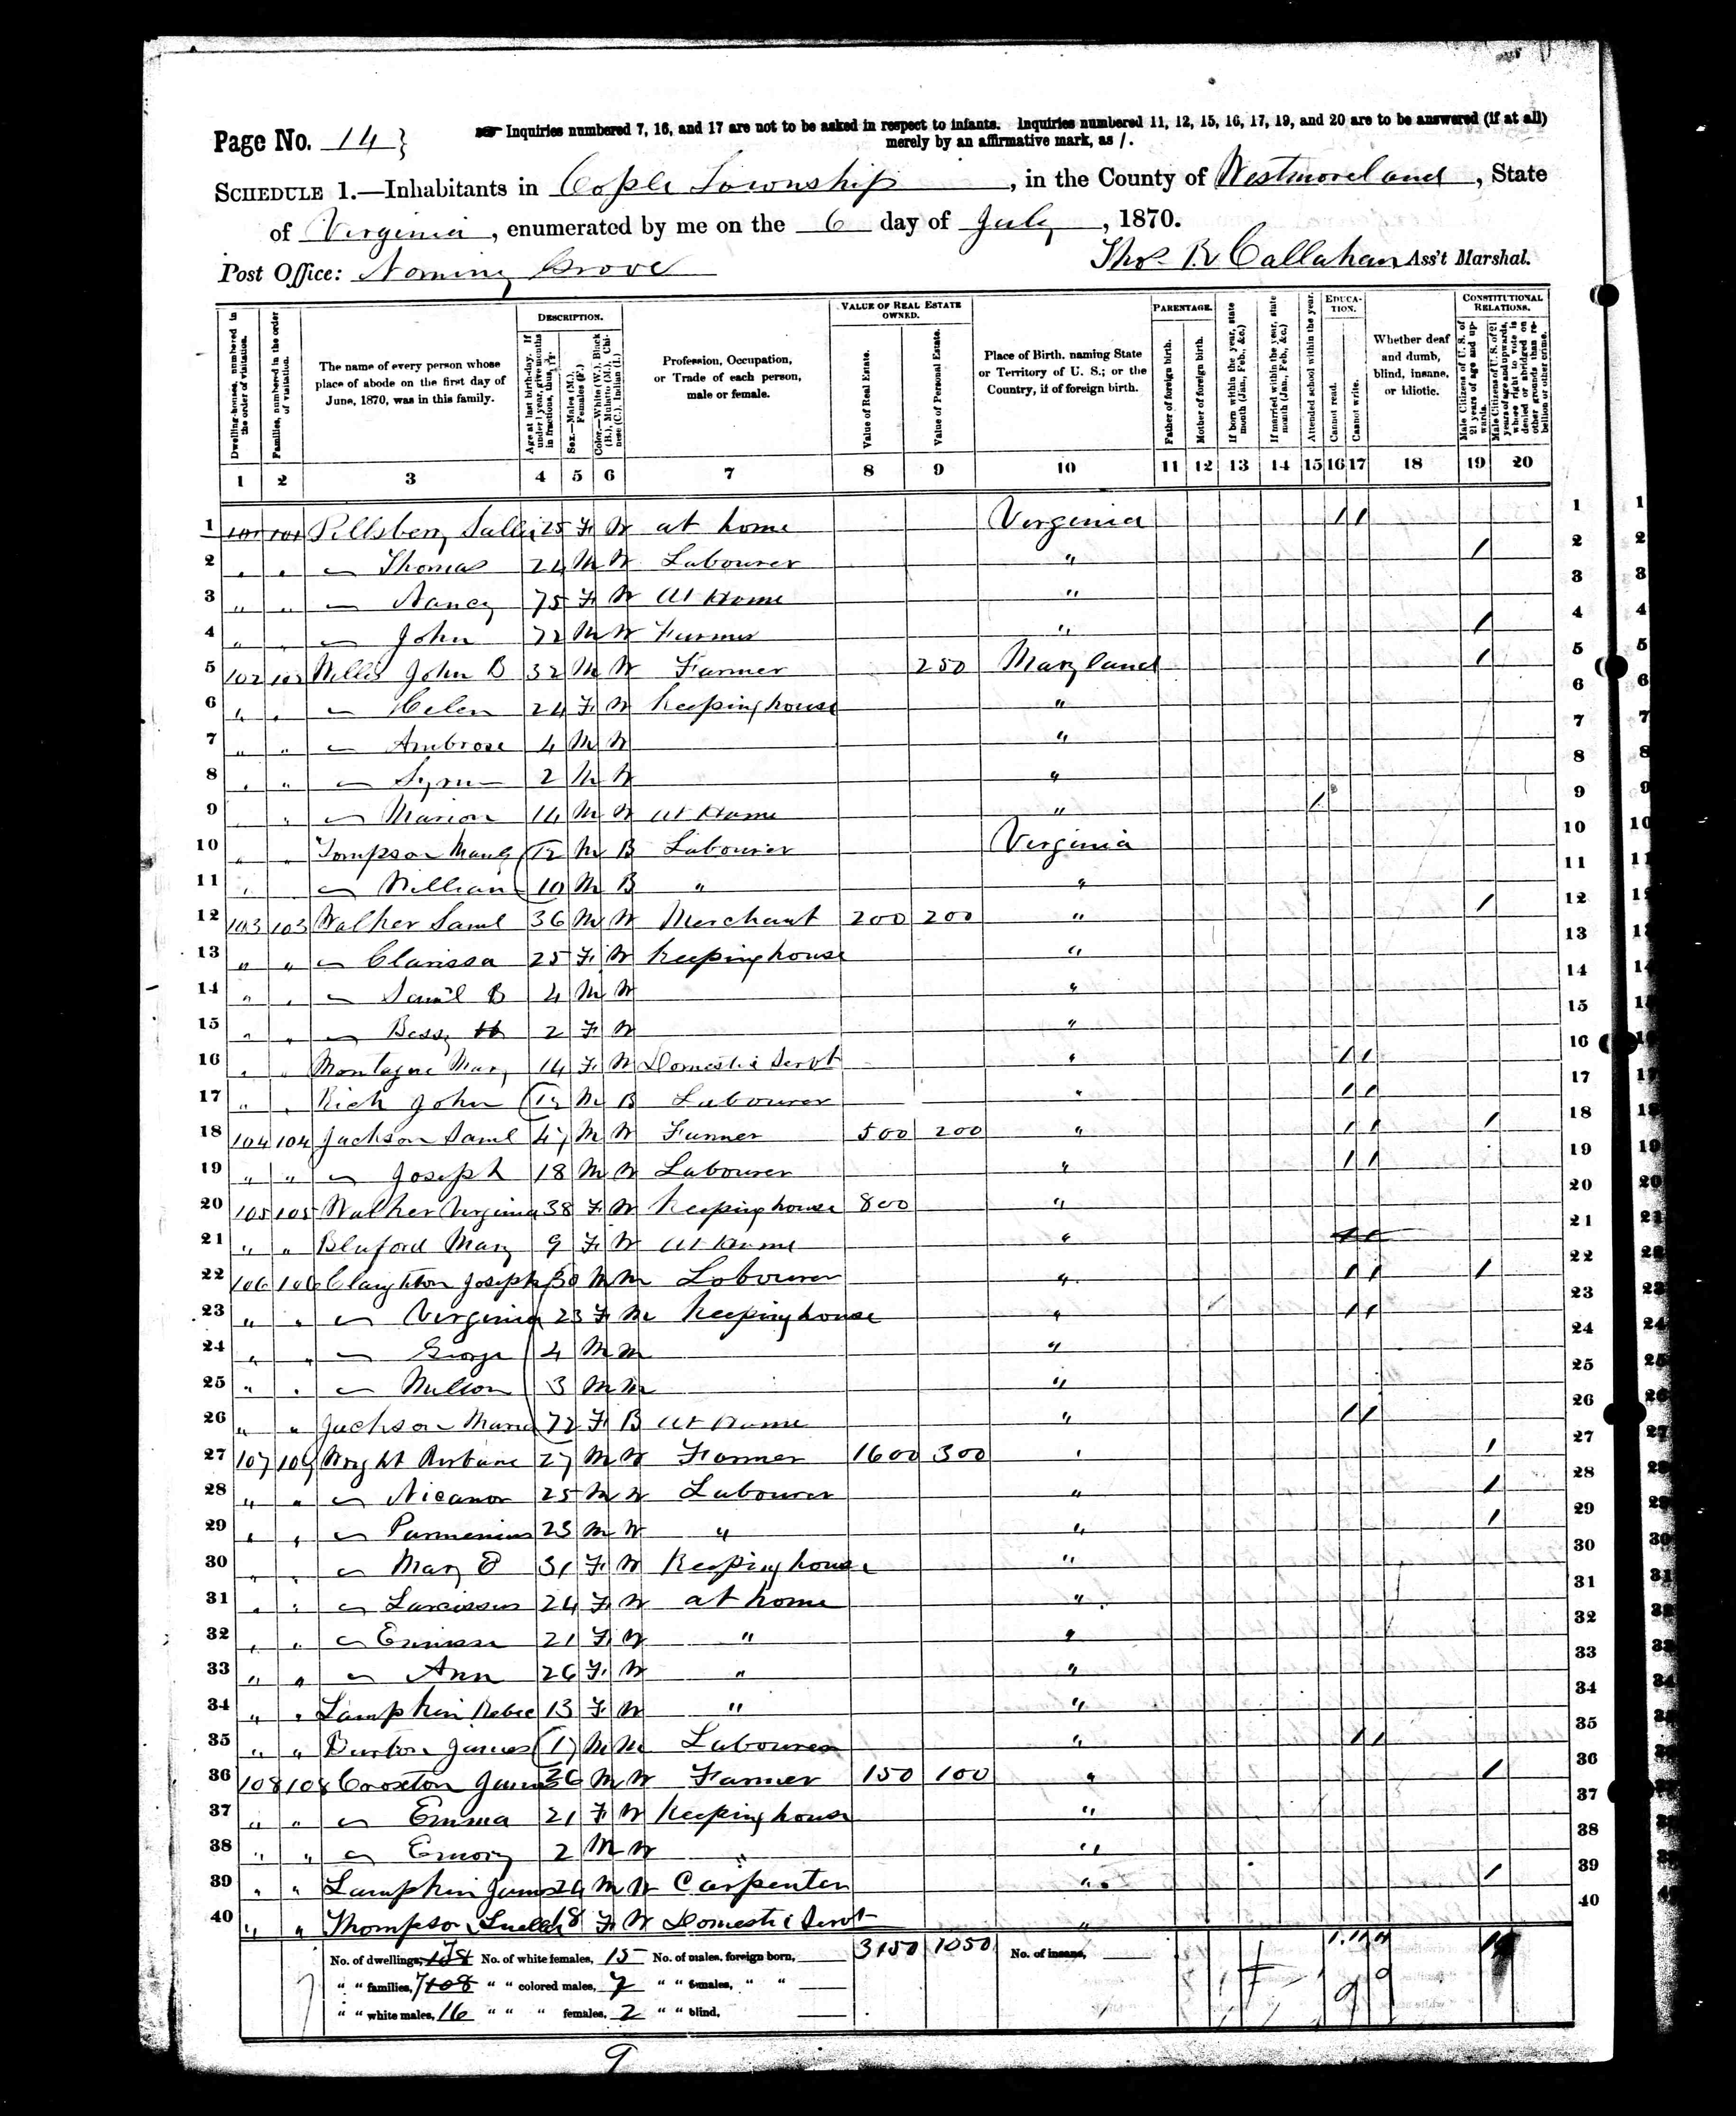 Page No. 14 }
Inquiries numbered 7, 16, and 17 are not to be asked in respect to infants. Inquiries numbered 11, 12, 15, 16, 17, 19, and 20 are to be answered (if at all)
merely by an affirmative mark, as /.
SCHEDULE 1.—Inhabitants in Cople Township, in the County of Westmoreland, State
of Virginia, enumerated by me on the 6 day of July, 1870.
Post Office: Nominy Grove
Thos. R Callahan Ass't Marshal.
Dwelling-houses, numbered in the order of visitation.
Families, numbered in the order of visitation.
The name of every person whose place of abode on the first day of June, 1870, was in this family.
DESCRIPTION.
Age at last birth-day. If under 1 year, give months in fractions, thus,
Sex.—Males (M.), Females (F.)
Color.—White (W.), Black (B.), Mulatto (M.), Chinese (C.), Indian (I.)
Profession, Occupation, or Trade of each person, male or female.
VALUE OF REAL ESTATE OWNED.
Value of Real Estate.
Value of Personal Estate.
Place of Birth, naming State or Territory of U. S.; or the Country, if of foreign birth.
PARENTAGE.
Father of foreign birth.
Mother of foreign birth.
If born within the year, state month (Jan., Feb., &c.)
If married within the year, state month (Jan., Feb., &c.)
Attended school within the year.
EDUCATION.
Cannot read.
Cannot write.
Whether deaf and dumb, blind, insane, or idiotic.
CONSTITUTIONAL RELATIONS.
Male Citizens of U. S. of 21 years of age and upwards.
Male Citizens of U. S. of 21 years of age and upwards, whose right to vote is denied or abridged on other grounds than rebellion or other crime.
1 2 3 4 5 6 7 8 9 10 11 12 13 14 15 16 17 18 19 20
1 101 101 Pillsberry Sallie 25 F W at home Virginia / / 1
2 " " — Thomas 24 M W Labourer " / 2
3 " " — Nancy 75 F W At Home " 3
4 " " — John 72 M W Farmer " / 4
5 102 102 Willis John B 32 M W Farmer 250 Maryland / 5
6 " " — Helen 24 F W Keeping house " 6
7 " " — Ambrose 4 M W " 7
8 " " — 2 M W " 8
9 " — Marion 14 M W At Home " / 9
10 " " Tompson 12 M B Labourer Virginia 10
11 " — William 10 M B " " 11
12 103 103 Walker Saml 36 M W Merchant 200 200 " / 12
13 " " — Clarissa 25 F W Keeping house " 13
14 " " — Sam'l B 4 M W " 14
15 " " — Bessy 2 F W " 15
16 " " Montague Mary 14 F W Domestic Servt " / / 16
17 " " Rich John 12 M B Labourer " / / 17
18 104 104 Jackson Saml 47 M W Farmer 500 200 " / / / 18
19 " " — Joseph 18 M W Labourer " / / 19
20 105 105 Walker Virginia 38 F W Keeping house 800 " 20
21 " " Bluford Mary 9 F W At Home " 21
22 106 106 Claughton Joseph 30 M M Labourer " / / / 22
23 " " — Virginia 23 F M Keeping house " / / 23
24 " " — George 4 M M " 24
25 " " — 3 M M " 25
26 " " Jackson Maria 72 F B At Home " / / 26
27 107 107 Wright 27 M W Farmer 1600 300 " / 27
28 " " — Nicanor 25 M W Labourer " / 28
29 " " — Parmenius 23 M W " " / 29
30 " " — Mary E 31 F W Keeping house " 30
31 " " — 24 F W at home " 31
32 " " — 21 F W " " 32
33 " " — Ann 26 F W " " 33
34 " " Lampkin Rebec 13 F W " " 34
35 " " Burton James 17 M M Labourer " / / 35
36 108 108 Croxton James 36 M W Farmer 150 100 " / 36
37 " " — Emma 21 F W Keeping house " 37
38 " " — Emory 2 M W " " 38
39 " " Lampkin James 24 M W Carpenter " / 39
40 " " Thompson 18 F W Domestic Servt " 40
No. of dwellings, 108 7 No. of white females, 15 No. of males, foreign born, 3150 1050 No. of insane,
" " families, 7 108 " " colored males, 7 " " females, " "
" " white males, 16 " " " females, 2 " " blind,
9 9
9